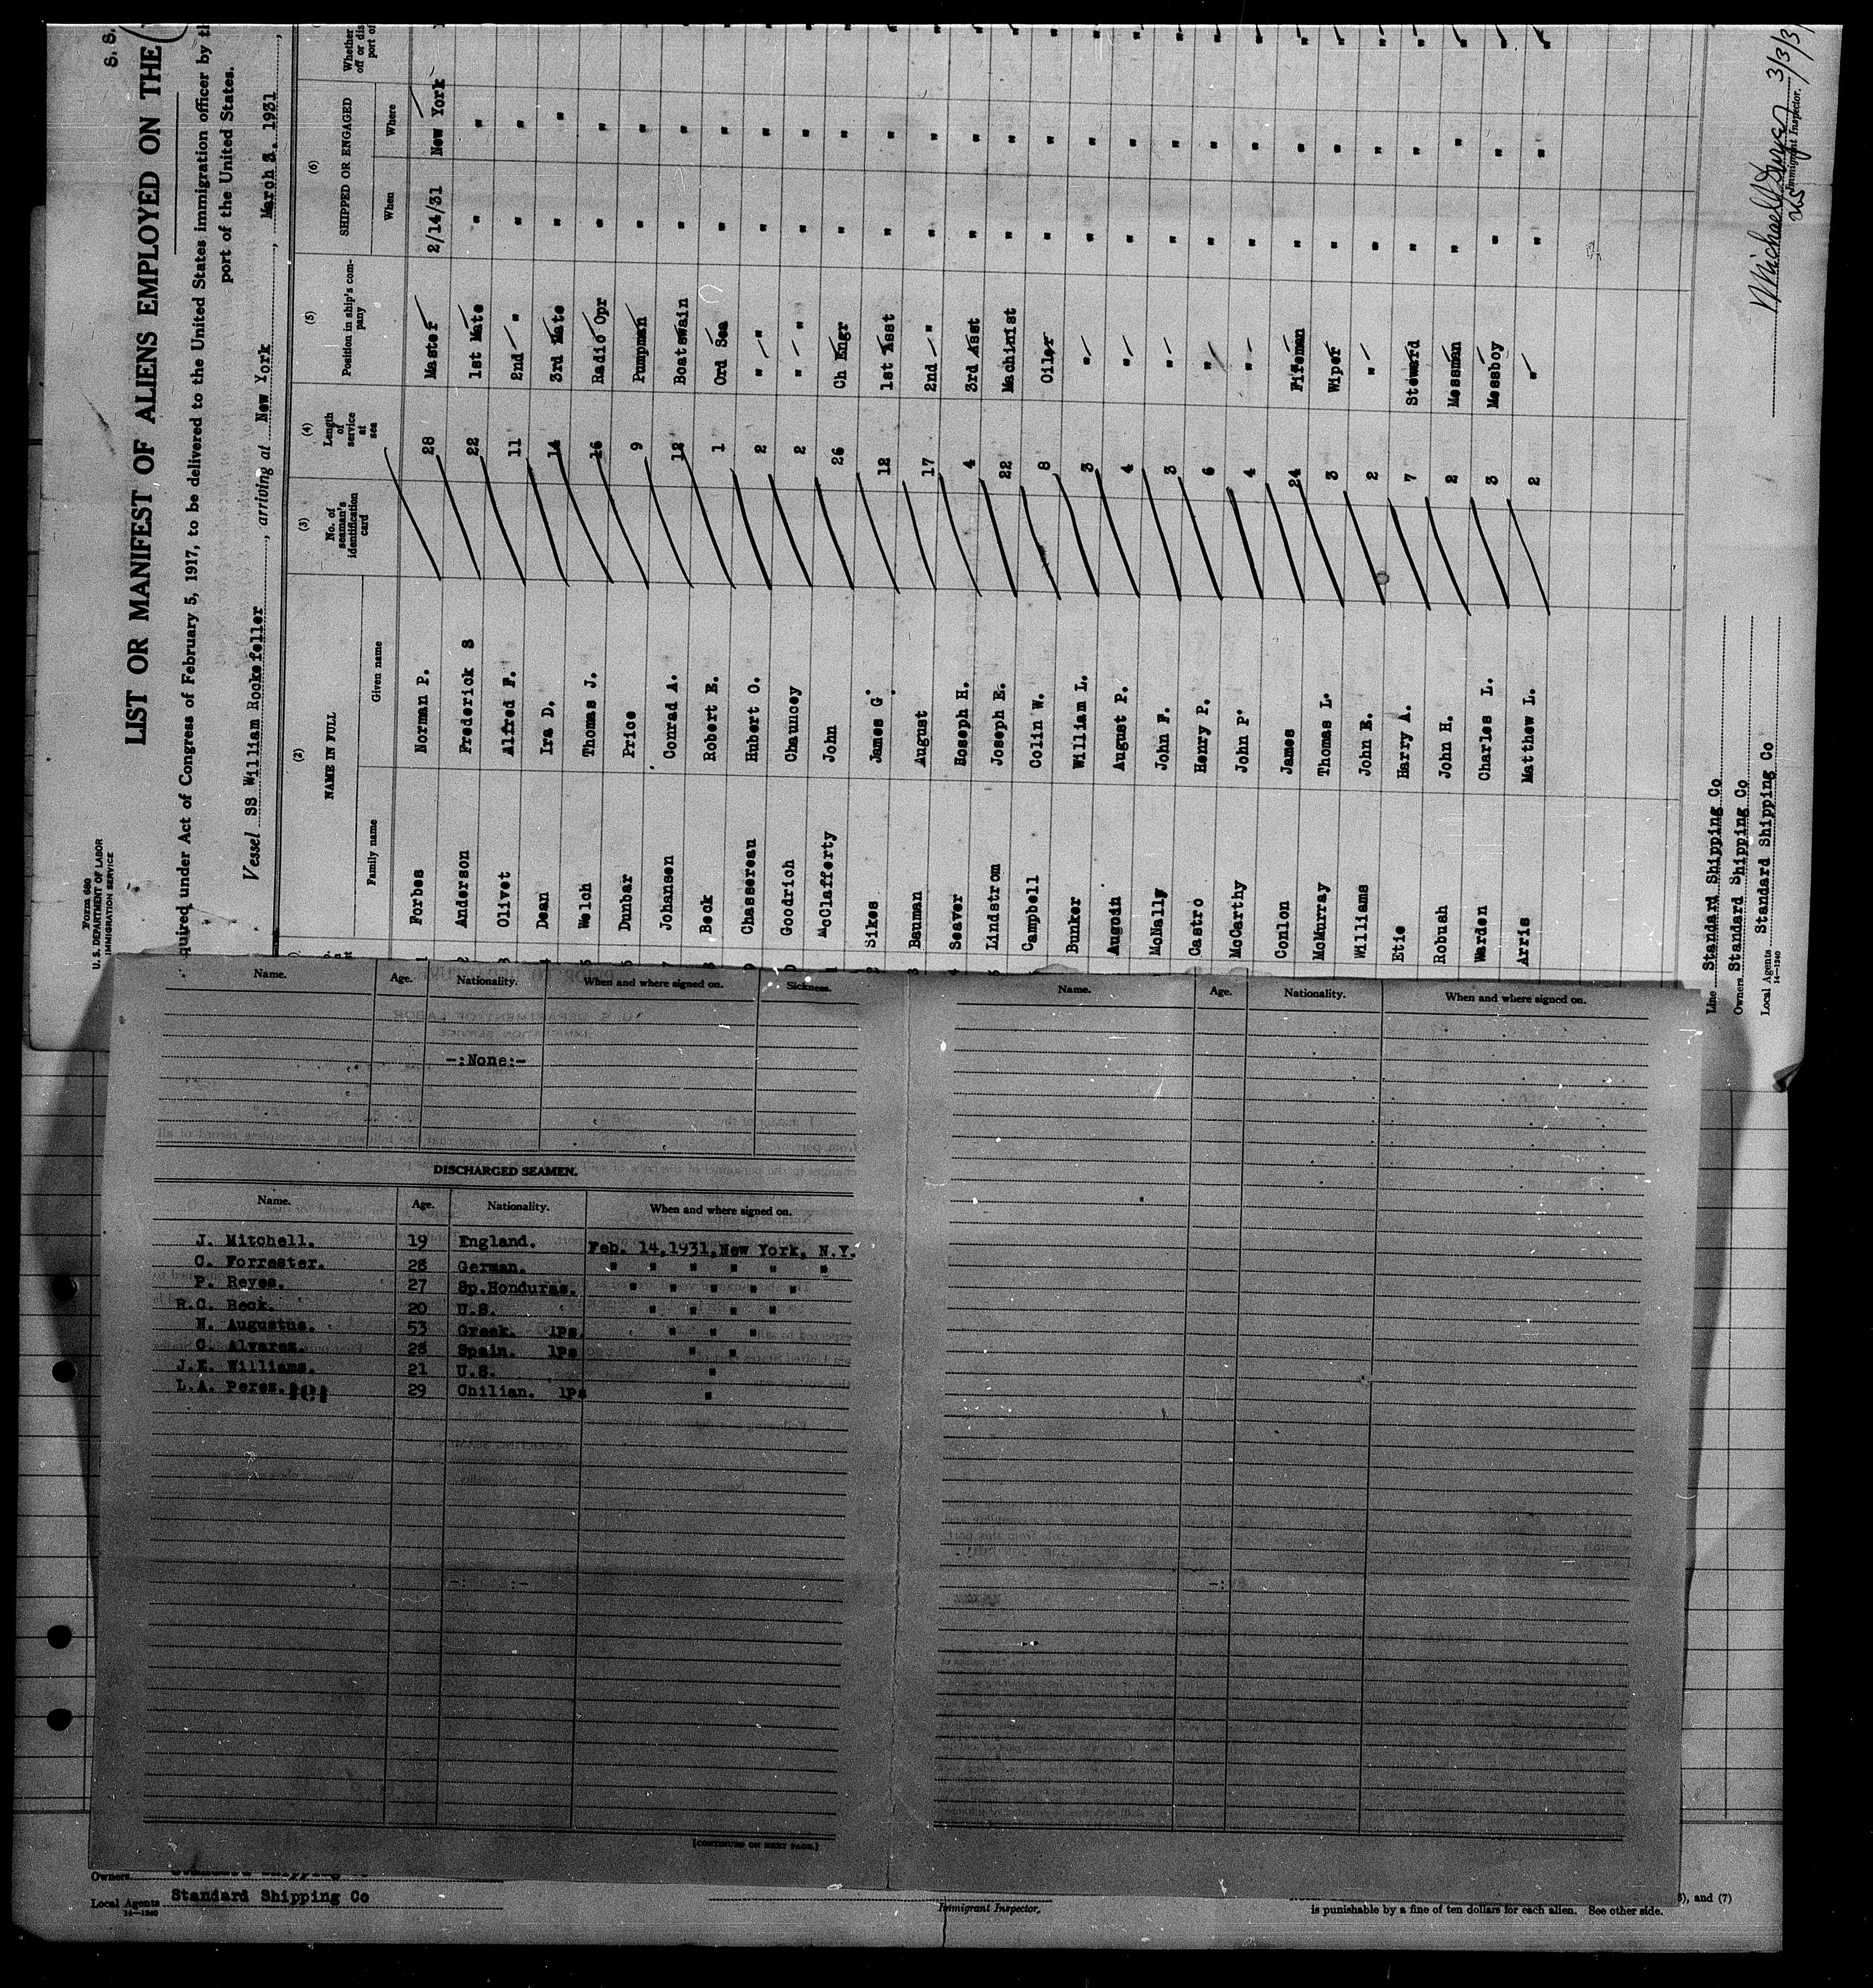 Form 680
U. S. DEPARTMENT OF LABOR
IMMIGRATION SERVICE
S. S.
LIST OR MANIFEST OF ALIENS EMPLOYED ON THE
quired under Act of Congress of February 5, 1917, to be delivered to the United States immigration officer by th
port of the United States.
Vessel SS William Rockefeller, arriving at New York, March 3. 1931,
(2) NAME IN FULL
Family name Given name
(3) No. of seaman's identification card
(4) Length of service at sea
(5) Position in ship's company
(6) SHIPPED OR ENGAGED
When Where
Whether
off or dis
port of
Forbes Norman P. 28 Master 2/14/31 New York
Anderson Frederick S 22 1st Mate " "
Olivet Alfred F. 11 2nd " " "
Dean Ira D. 14 3rd Mate " "
Welch Thomas J. 16 Radio Opr " "
Dunbar Price 9 Pumpman " "
Johansen Conrad A. 12 Boatswain " "
Beck Robert E. 1 Ord Sea " "
Chassereau Hubert O. 2 " " " "
Goodrich Chauncey 2 " " " "
McClafferty John 26 Ch Engr " "
Sikes James G. 12 1st Asst " "
Bauman August 17 2nd " " "
Seaver Hoseph H. 4 3rd Asst " "
Lindstrom Joseph E. 22 Machinist " "
Campbell Colin W. 8 Oiler " "
Bunker William L. 3 " " "
Augoin August P. 4 " " "
McNally John F. 3 " " "
Castro Henry P. 6 " " "
McCarthy John P. 4 " " "
Conlon James 24 Fireman " "
McMurray Thomas L. 3 Wiper " "
Williams John E. 2 " " "
Etie Harry A. 7 Steward " "
Robush John H. 2 Messman " "
Warden Charles L. 3 Messboy " "
Arris Matthew L. 2 " " "
Line Standard Shipping Co
Owners Standard Shipping Co
Local Agents Standard Shipping Co
14—1240
3/3/31
Immigrant Inspector.
Name. Age. Nationality. When and where signed on. Sickness.
-:None:-
DISCHARGED SEAMEN.
Name. Age. Nationality. When and where signed on.
J. Mitchell. 19 England. Feb. 14,1931,New York, N.Y.
C. Forrester. 28 German. " " " " " "
P. Reyes. 27 Sp.Honduras. " " " " "
R.C. Beck. 20 U.S. " " " "
N. Augustus. 53 Greek. 1Ps. " " "
C. Alvarez. 28 Spain. 1Ps " "
J.E. Williams. 21 U.S. "
L.A. Perez. 29 Chilian. 1Ps "
[CONTINUED ON NEXT PAGE.]
Name. Age. Nationality. When and where signed on.
Owners Standard Shipping Co
Local Agents Standard Shipping Co
14—1240
Immigrant Inspector.
), and (7)
is punishable by a fine of ten dollars for each alien. See other side.